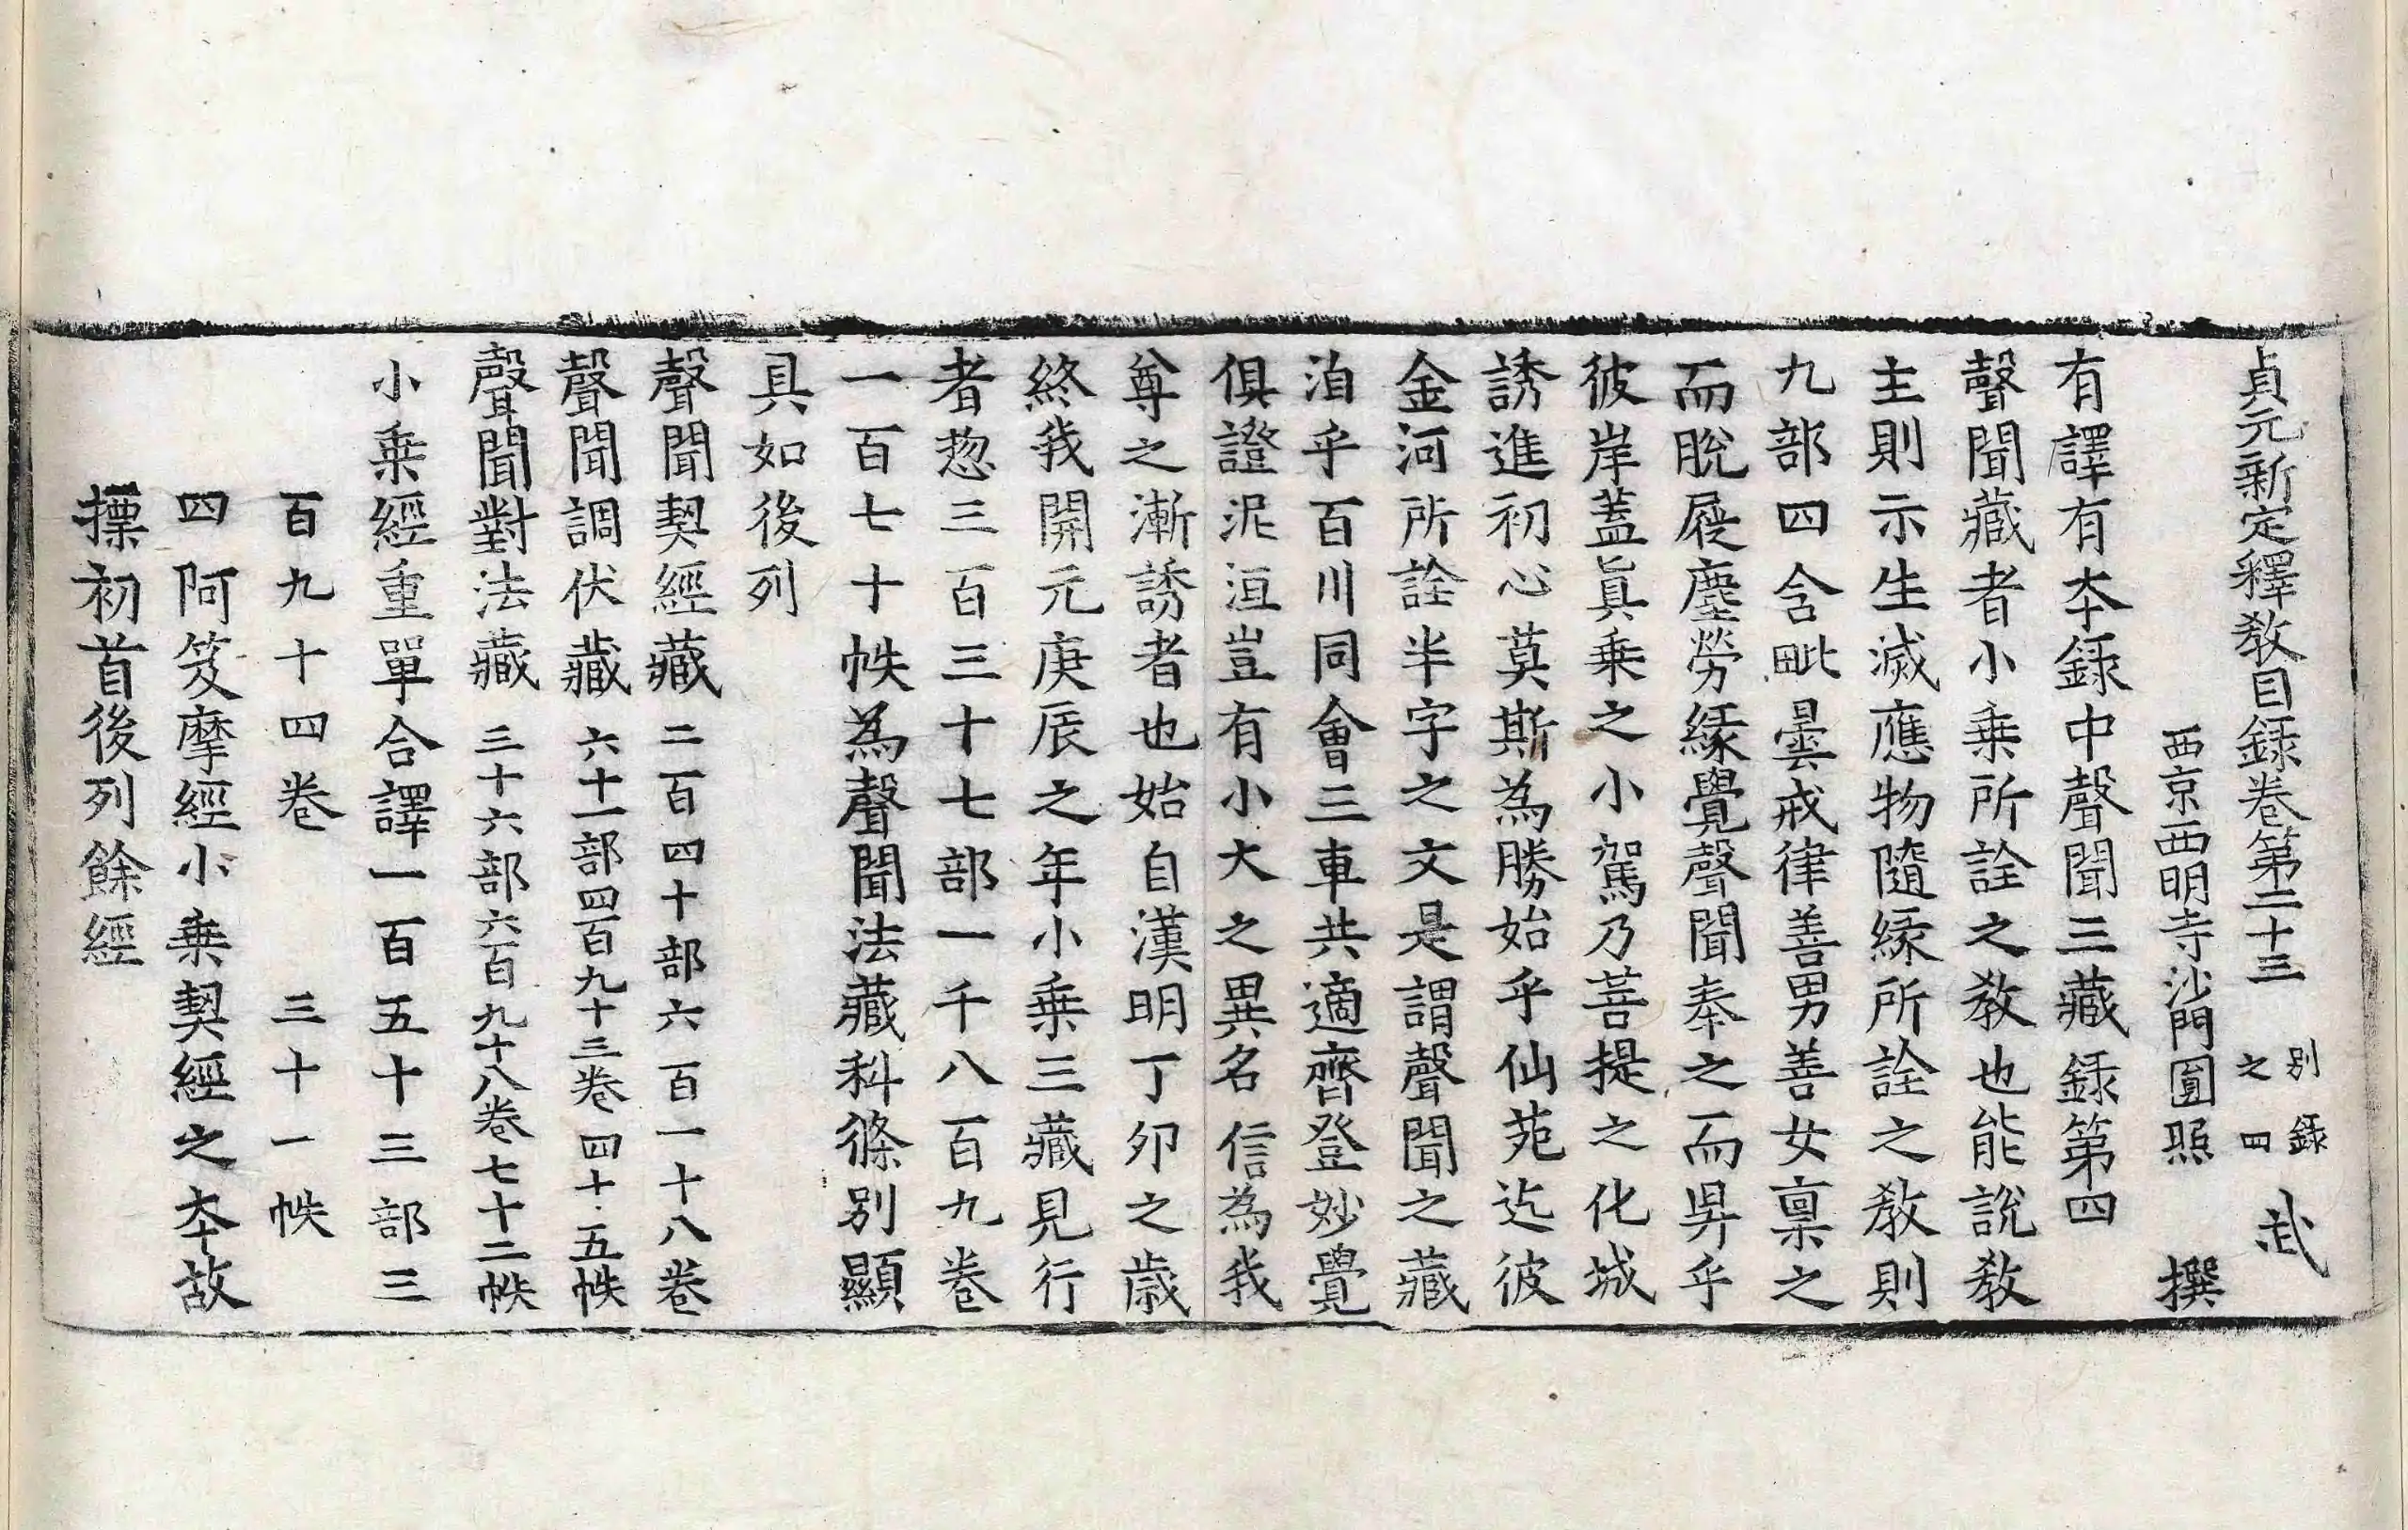 貞元新定釋教目録卷第二十三 別録之四 武
西京西明寺沙門圓照 撰
有譯有夲録中聲聞三藏録第四
聲聞藏者小乗所詮之教也能說教
主則示生滅應物隨縁所詮之教則
九部四含毗曇戒律善男善女禀之
而脫屣塵勞縁覺聲聞奉之而昇乎
彼岸蓋眞乗之小駕乃菩提之化城
誘進初心莫斯為勝始乎仙苑迄彼
金河所詮半字之文是謂聲聞之藏
洎乎百川同會三車共適齊登妙覺
俱證泥洹豈有小大之異名信為我
尊之漸誘者也始自漢明丁夘之歳
終我開元庚辰之年小乗三藏見行
者惣三百三十七部一千八百九卷
一百七十帙為聲聞法藏科條別顯
具如後列
聲聞契經藏 二百四十部六百一十八卷
聲聞調伏藏 六十一部四百九十三卷四十五帙
聲聞對法藏 三十六部六百九十八卷七十二帙
小乗經重單合譯一百五十三部三
百九十四卷 三十一帙
四阿笈摩經小乗契經之夲故
摽初首後列餘經